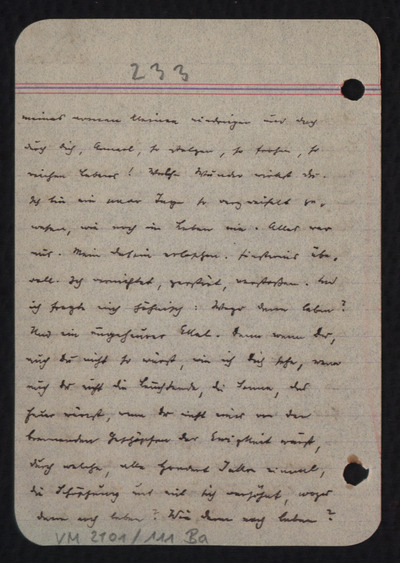 233
meines armen kleinen niedrigen und doch
durch Dich, Annerl, so stolzen, so frohen, so
reichen Lebens! Welche Wunder wirkst Du.
Ich bin ein paar Tage so verzweifelt ge-
wesen, wie noch im Leben nie. Alles war
aus. Mein Dasein erloschen. Finsternis übe-
rall. Ich vernichtet, zerstört, verstoßen. Und
ich fragte mich höhnisch: Wozu denn leben?
Und ein ungeheurer Ekel. Denn wenn Du,
auch Du nicht so wärst, wie ich Dich sehe, wenn
auch Du nicht die Leuchtende, die Sonne, das
Feuer wärest, wenn Du nicht eines von den
brennenden Geschöpfen der Ewigkeit wärst,
durch welche, alle hundert Jahre einmal,
die Schöpfung uns mit sich versöhnt, wozu
dann noch leben? Wie dann noch leben?
VM 2101/111 Ba